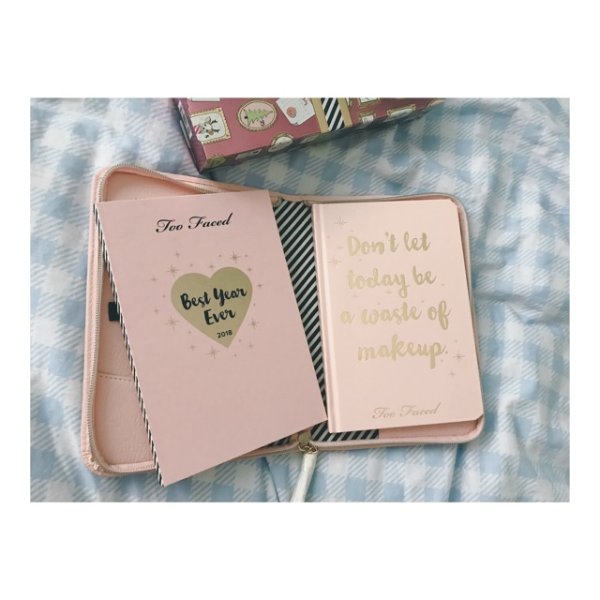 Too Faced
Best Year
Ever
2018
Don't let
today be
a waste of
makeup.
Too Faced